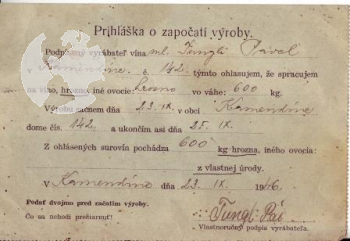 Prihláška o započatí výroby.
Podpísaný vyrábateľ vína ml. Tengli Pavol
v Kamendíne č. 142 týmto ohlasujem, že spracujem
na víno, hrozno iné ovocie hrozno vo váhe: 600 kg.
Výrobu začnem dňa 23. IX. v obci Kamendíne
dome čís. 142 a ukončím asi dňa 25. IX.
Z ohlásených surovín pochádza 600 kg hrozna, iného ovocia:
z vlastnej úrody.
V Kamendíne dňa 23. IX. 1946
Podať dvojmo pred začatím výroby.
Čo sa nehodí preškrtnúť! Tengli Pál
Vlastnoručný podpis vyrábateľa.